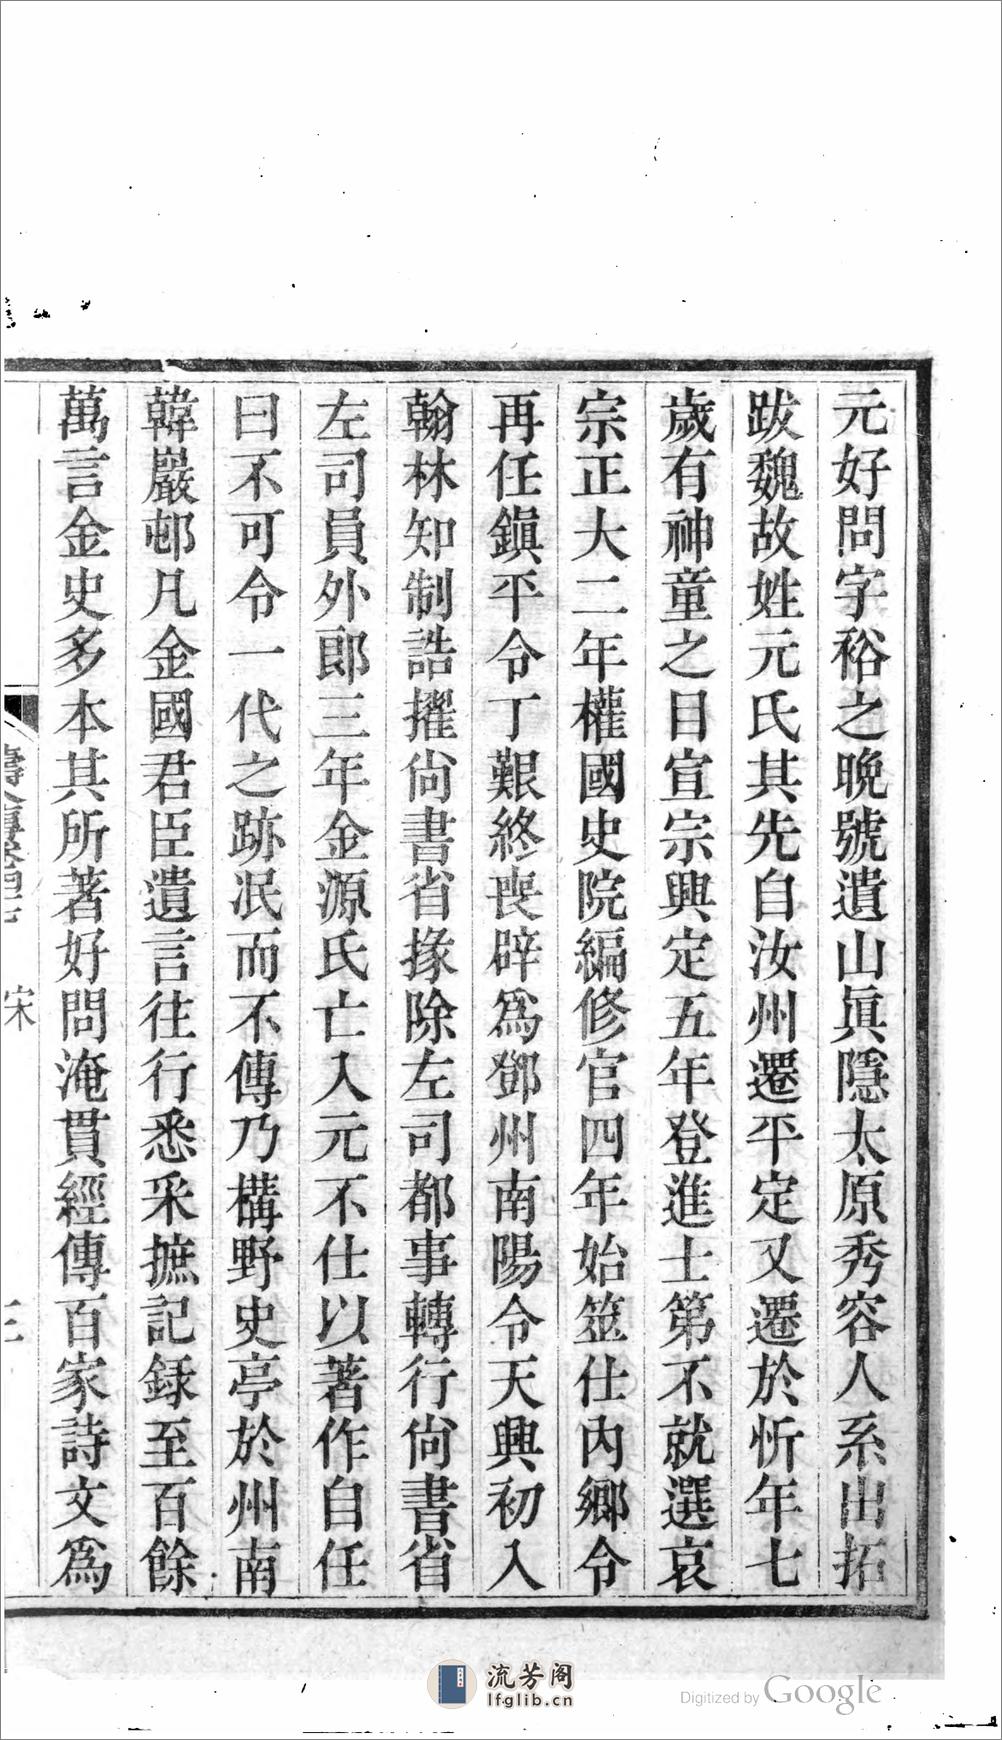 元好問字裕之晚號遺山眞隱太原秀容人系出拓
跋魏故姓元氏其先自汝州遷平定又遷於忻年七
歲有神童之目宣宗興定五年登進士第不就選哀
宗正大二年權國史院編修官四年始筮仕內鄉令
再任鎭平令丁艱終喪辟爲鄧州南陽令天興初入
翰林知制誥擢尙書省掾除左司都事轉行尙書省
左司員外郞三年金源氏亡入元不仕以著作自任
曰不可令一代之跡泯而不傳乃構野史亭於州南
韓巖邨凡金國君臣遺言往行悉采摭記録至百餘
萬言金史多本其所著好問淹貫經傳百家詩文爲
宋
流芳阁
lfglib.cn
Digitized by Google